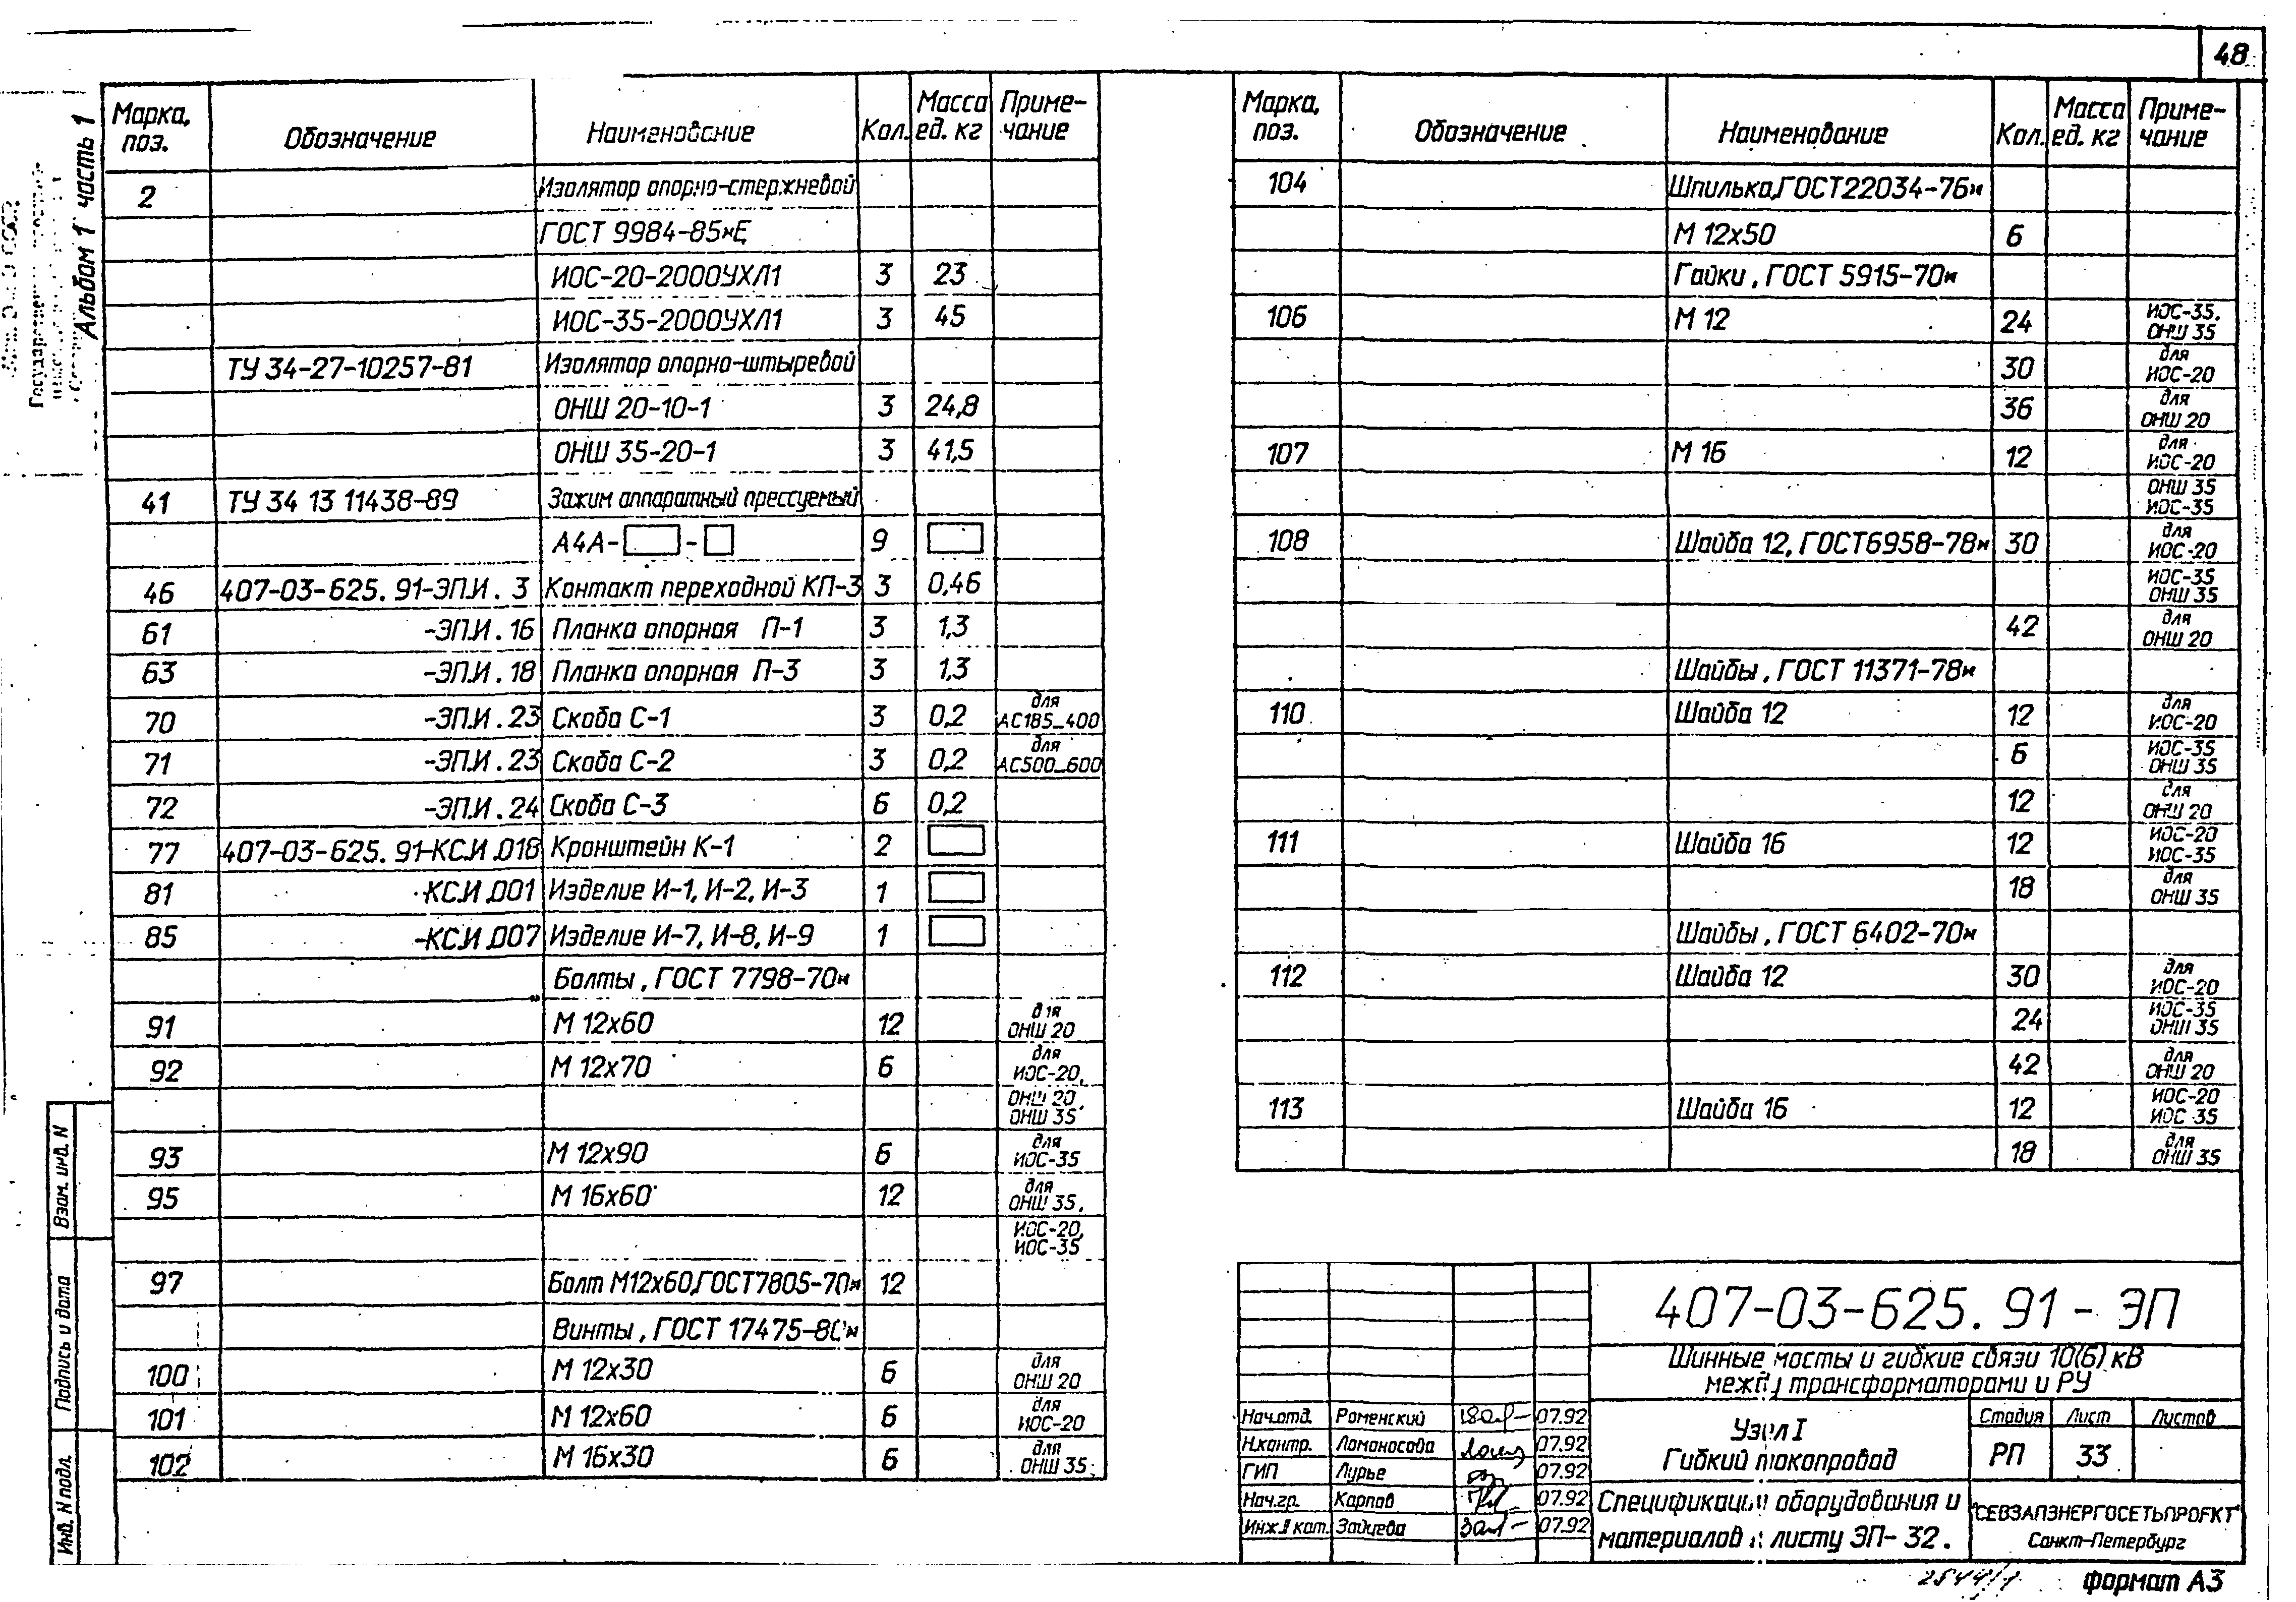 48
Альбом 1 часть 1
Марка, поз. Обозначение Наименование Кол. Масса ед. кг Примечание
2 Изолятор опорно-стержневой
ГОСТ 9984-85*Е
ИОС-20-2000УХЛ1 3 23
ИОС-35-2000УХЛ1 3 45
ТУ 34-27-10257-81 Изолятор опорно-штыревой
ОНШ 20-10-1 3 24,8
ОНШ 35-20-1 3 41,5
41 ТУ 34 13 11438-89 Зажим аппаратный прессуемый
А4А- - 9
46 407-03-625.91-ЭП.И.3 Контакт переходной КП-3 3 0,46
61 -ЭП.И.16 Планка опорная П-1 3 1,3
63 -ЭП.И.18 Планка опорная П-3 3 1,3
70 -ЭП.И.23 Скоба С-1 3 0,2 для АС185...400
71 -ЭП.И.23 Скоба С-2 3 0,2 для АС500...600
72 -ЭП.И.24 Скоба С-3 6 0,2
77 407-03-625.91-КС.И.018 Кронштейн К-1 2
81 -КС.И.001 Изделие И-1, И-2, И-3 1
85 -КС.И.007 Изделие И-7, И-8, И-9 1
Болты, ГОСТ 7798-70*
91 М 12х60 12 для ОНШ 20
92 М 12х70 6 для ИОС-20,
ОНШ 20 ОНШ 35
93 М 12х90 6 для ИОС-35
95 М 16х60 12 для ОНШ 35,
ИОС-20, ИОС-35
97 Болт М12х60,ГОСТ7805-70* 12
Винты, ГОСТ 17475-80*
100 М 12х30 6 для ОНШ 20
101 М 12х60 6 для ИОС-20
102 М 16х30 6 для ОНШ 35
Марка, поз. Обозначение Наименование Кол. Масса ед. кг Примечание
104 Шпилька,ГОСТ22034-76*
М 12х50 6
Гайки, ГОСТ 5915-70*
106 М 12 24 ИОС-35. ОНШ 35
30 для ИОС-20
36 для ОНШ 20
107 М 16 12 для ИОС-20
ОНШ 35 ИОС-35
108 Шайба 12, ГОСТ6958-78* 30 для ИОС-20
ИОС-35 ОНШ 35
42 для ОНШ 20
Шайбы, ГОСТ 11371-78*
110 Шайба 12 12 для ИОС-20
6 ИОС-35 ОНШ 35
12 для ОНШ 20
111 Шайба 16 12 ИОС-20 ИОС-35
18 для ОНШ 35
Шайбы, ГОСТ 6402-70*
112 Шайба 12 30 для ИОС-20
24 ИОС-35 ОНШ 35
42 для ОНШ 20
113 Шайба 16 12 ИОС-20 ИОС 35
18 для ОНШ 35
Взам. инв. N
Подпись и дата
Инв. N подл.
407-03-625.91-ЭП
Шинные мосты и гибкие связи 10(6) кВ
между трансформаторами и РУ
Нач.отд. Роменский 07.92
Н.контр. Ломоносова 07.92
ГИП Лурье 07.92
Нач.гр. Карпов 07.92
Инж.II кат. Зайцева 07.92
Узел I
Гибкий токопровод
Стадия Лист Листов
РП 33
Спецификации оборудования и
материалов к листу ЭП-32.
"СЕВЗАПЭНЕРГОСЕТЬПРОЕКТ"
Санкт-Петербург
2544/1
формат А3